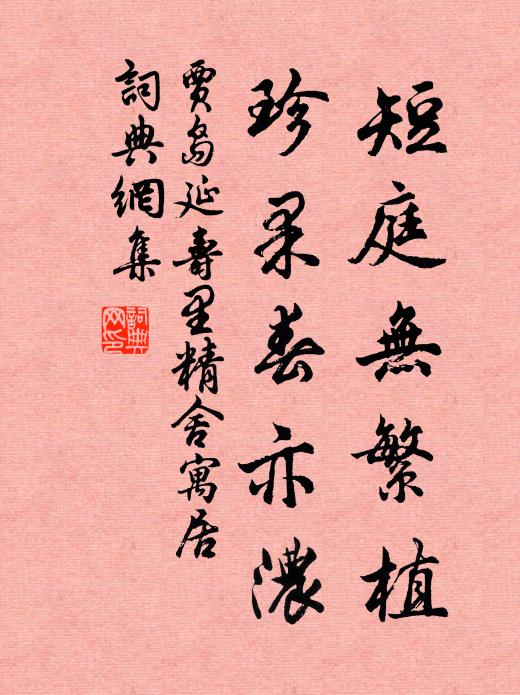 短庭無繁植
珍果春亦濃
賈島延壽里精舍寓居
詞典網集
詞典網印